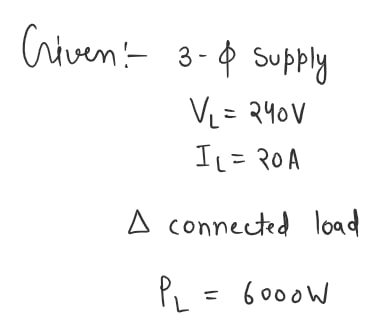 Given:- 3-ϕ Supply
V_L = 240V
I_L = 20A
Δ connected load
P_L = 6000W